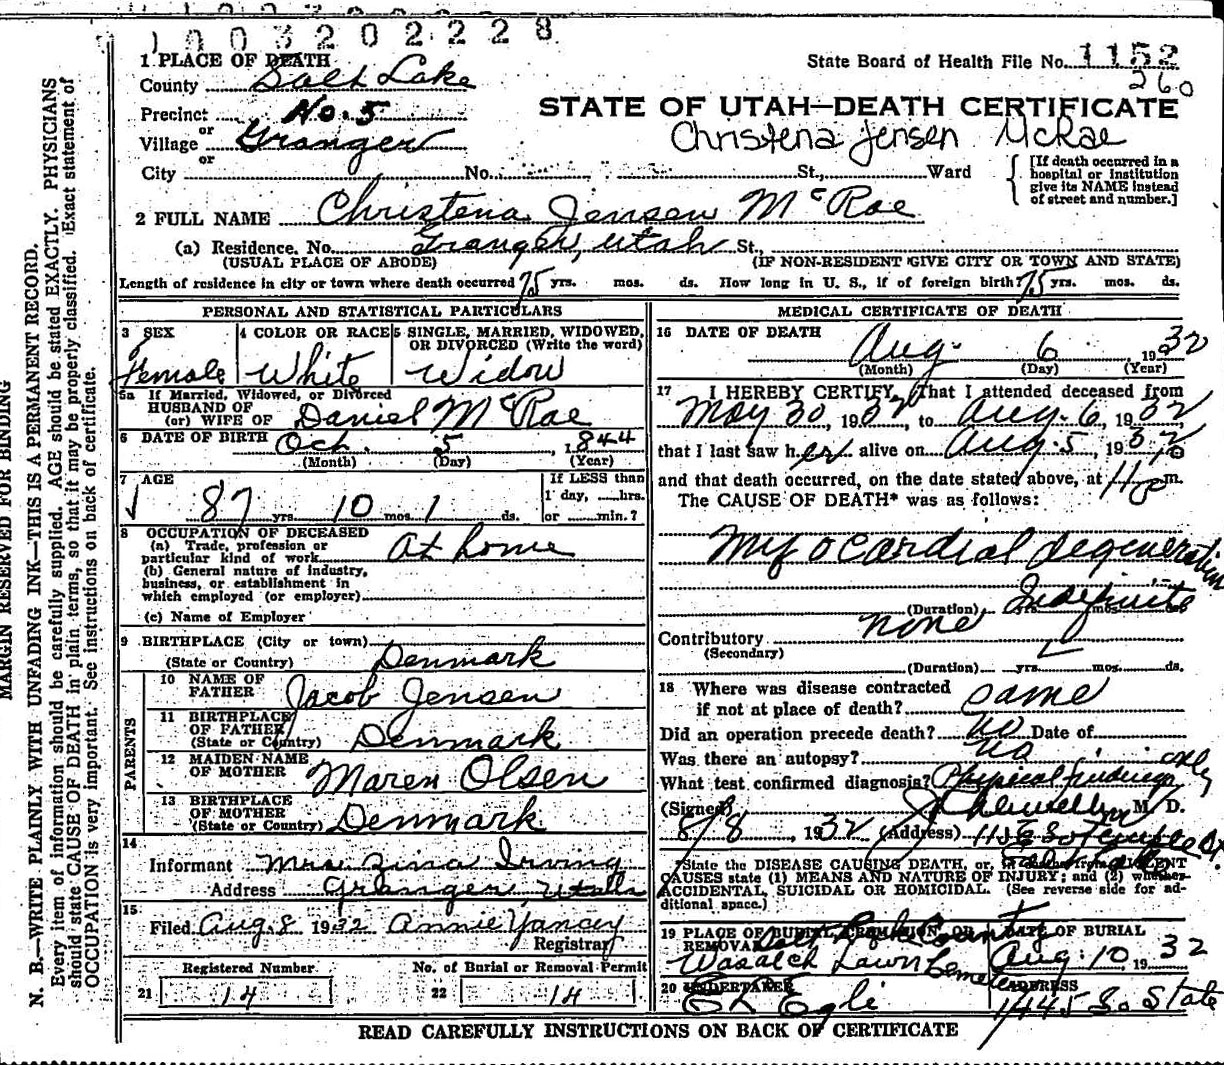 1003202228
1 PLACE OF DEATH
State Board of Health File No. 1152
260
County Salt Lake
Precinct No. 5
STATE OF UTAH—DEATH CERTIFICATE
or
Village Granger
Christena Jensen McRae
or
City No. St., Ward
[If death occurred in a hospital or institution give its NAME instead of street and number.]
2 FULL NAME Christena Jensen McRae
(a) Residence, No. Granger, Utah St.,
(USUAL PLACE OF ABODE) (IF NON-RESIDENT GIVE CITY OR TOWN AND STATE)
Length of residence in city or town where death occurred 75 yrs. mos. ds. How long in U. S., if of foreign birth? 75 yrs. mos. ds.
PERSONAL AND STATISTICAL PARTICULARS
3 SEX
Female
4 COLOR OR RACE
White
5 SINGLE, MARRIED, WIDOWED,
OR DIVORCED (Write the word)
Widow
5a If Married, Widowed, or Divorced
HUSBAND OF
(or) WIFE OF Daniel McRae
6 DATE OF BIRTH Oct. 5, 1844
(Month) (Day) (Year)
7 AGE
87 yrs. 10 mos. 1 ds.
If LESS than
1 day, hrs.
or min.?
8 OCCUPATION OF DECEASED
(a) Trade, profession or
particular kind of work At home
(b) General nature of industry,
business, or establishment in
which employed (or employer)
(c) Name of Employer
9 BIRTHPLACE (City or town)
(State or Country) Denmark
PARENTS
10 NAME OF
FATHER Jacob Jensen
11 BIRTHPLACE
OF FATHER
(State or Country) Denmark
12 MAIDEN NAME
OF MOTHER Maren Olsen
13 BIRTHPLACE
OF MOTHER
(State or Country) Denmark
14
Informant Mrs. Zina Irving
Address Granger, Utah
15
Filed Aug. 8 1932 Annie Yancey
Registrar
Registered Number
21 14
No. of Burial or Removal Permit
22 14
MEDICAL CERTIFICATE OF DEATH
16 DATE OF DEATH
Aug. 6, 1932
(Month) (Day) (Year)
17 I HEREBY CERTIFY, That I attended deceased from
May 30, 1932, to Aug. 6, 1932
that I last saw her alive on Aug. 5, 1932
and that death occurred, on the date stated above, at m.
The CAUSE OF DEATH* was as follows:
Myocardial degeneration
(Duration) yrs. mos. ds. Indefinite
Contributory none
(Secondary)
(Duration) yrs. mos. ds.
18 Where was disease contracted
if not at place of death? same
Did an operation precede death? no Date of
Was there an autopsy? no
What test confirmed diagnosis? Physical findings only
(Signed) M. D.
8/8, 1932 (Address)
*State the DISEASE CAUSING DEATH, or, in deaths from VIOLENT
CAUSES state (1) MEANS AND NATURE OF INJURY; and (2) whether
ACCIDENTAL, SUICIDAL OR HOMICIDAL. (See reverse side for ad-
ditional space.)
19 PLACE OF BURIAL, CREMATION, OR
REMOVAL Salt Lake County
Wasatch Lawn Cemetery
DATE OF BURIAL
Aug. 10, 1932
20 UNDERTAKER
Egli
ADDRESS
So. State
READ CAREFULLY INSTRUCTIONS ON BACK OF CERTIFICATE
MARGIN RESERVED FOR BINDING
N. B.—WRITE PLAINLY WITH UNFADING INK—THIS IS A PERMANENT RECORD.
Every item of information should be carefully supplied. AGE should be stated EXACTLY. PHYSICIANS
should state CAUSE OF DEATH in plain terms, so that it may be properly classified. Exact statement of
OCCUPATION is very important. See instructions on back of certificate.